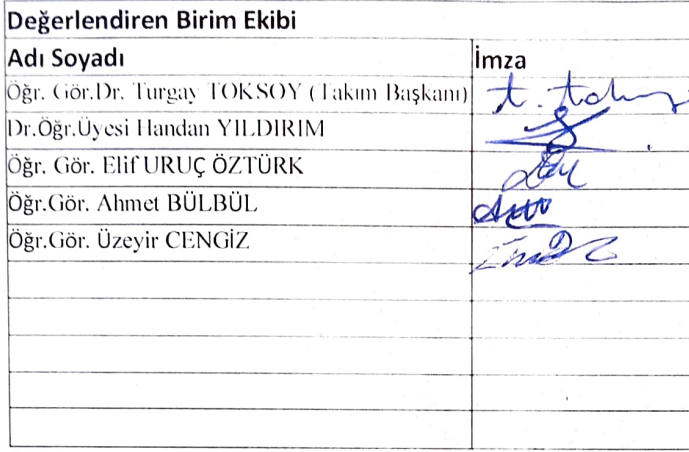 Değerlendiren Birim Ekibi
Adı Soyadı İmza
Öğr. Gör.Dr. Turgay TOKSOY (Takım Başkanı)
Dr.Öğr.Üyesi Handan YILDIRIM
Öğr. Gör. Elif URUÇ ÖZTÜRK
Öğr.Gör. Ahmet BÜLBÜL
Öğr.Gör. Üzeyir CENGİZ